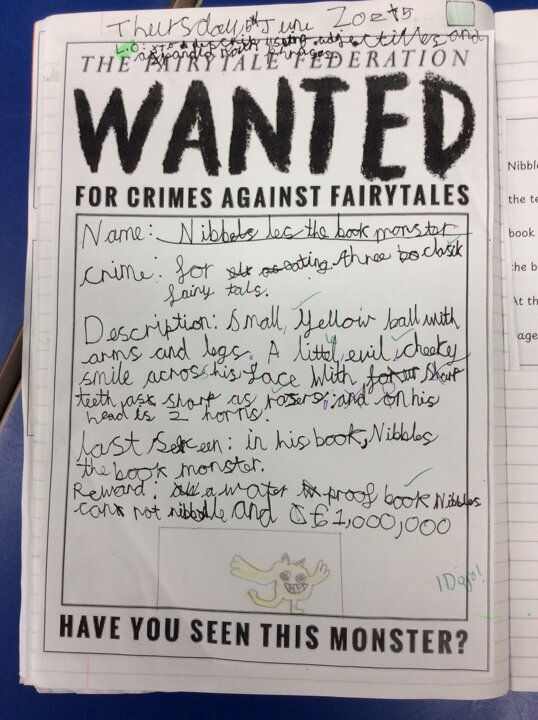 Thursday 5th June 2025
L.O: to describe using adjectives and
expanded noun phrases.
THE FAIRYTALE FEDERATION
WANTED
FOR CRIMES AGAINST FAIRYTALES
Name: Nibbles the book monster
crime: for eating three clasik
fairy tals.
Description: Small, yellow ball with
arms and legs. A littel, evil, cheeky
smile across his face with sharp
teeth, as sharp as rasers, and on his
head is 2 horns.
Last Seen: in his book, Nibbles
the book monster.
Reward: a water proof book Nibbles
can not nibble and £1,000,000
1D gjo!
HAVE YOU SEEN THIS MONSTER?
Nibbl
the te
book
the b
At th
age